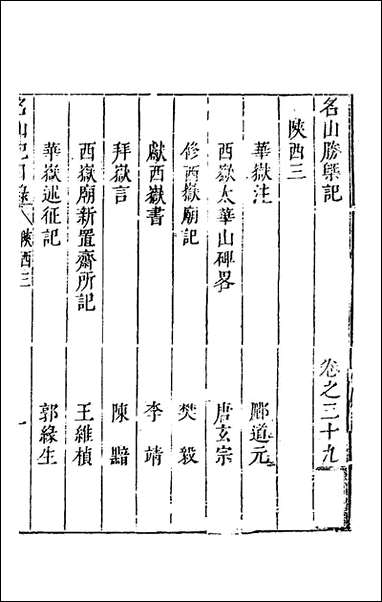 名山勝槩記 卷之三十九
陝西三
華嶽注 酈道元
西嶽太華山碑畧 唐玄宗
修西嶽廟記 樊毅
獻西嶽書 李靖
拜嶽言 陳黯
西嶽廟新置齋所記 王維楨
華嶽述征記 郭緣生
名山記目錄 陝西三 一